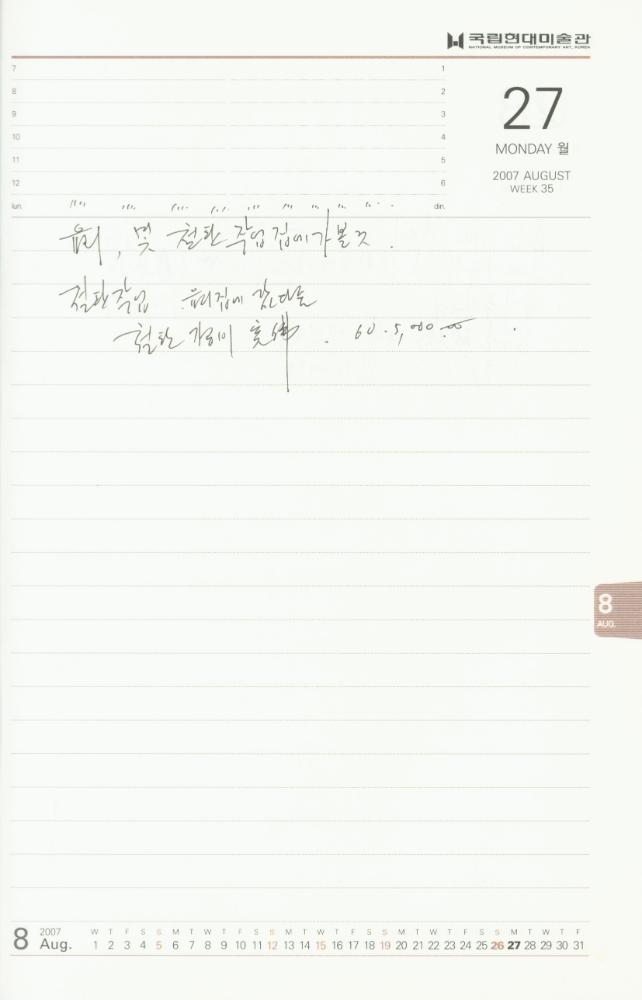 국립현대미술관
NATIONAL MUSEUM OF CONTEMPORARY ART, KOREA
7 1
8 2
9 3
10 4
11 5
12 6
lun. din.
27
MONDAY 월
2007 AUGUST
WEEK 35
유리, 및 철판 작업 집에 가볼 것.
철판작업 유리집에 갔다옴
철판 60.5,000.00
8
AUG.
8 2007 Aug.
W T F S S M T W T F S S M T W T F S S M T W T F S S M T W T F
1 2 3 4 5 6 7 8 9 10 11 12 13 14 15 16 17 18 19 20 21 22 23 24 25 26 27 28 29 30 31